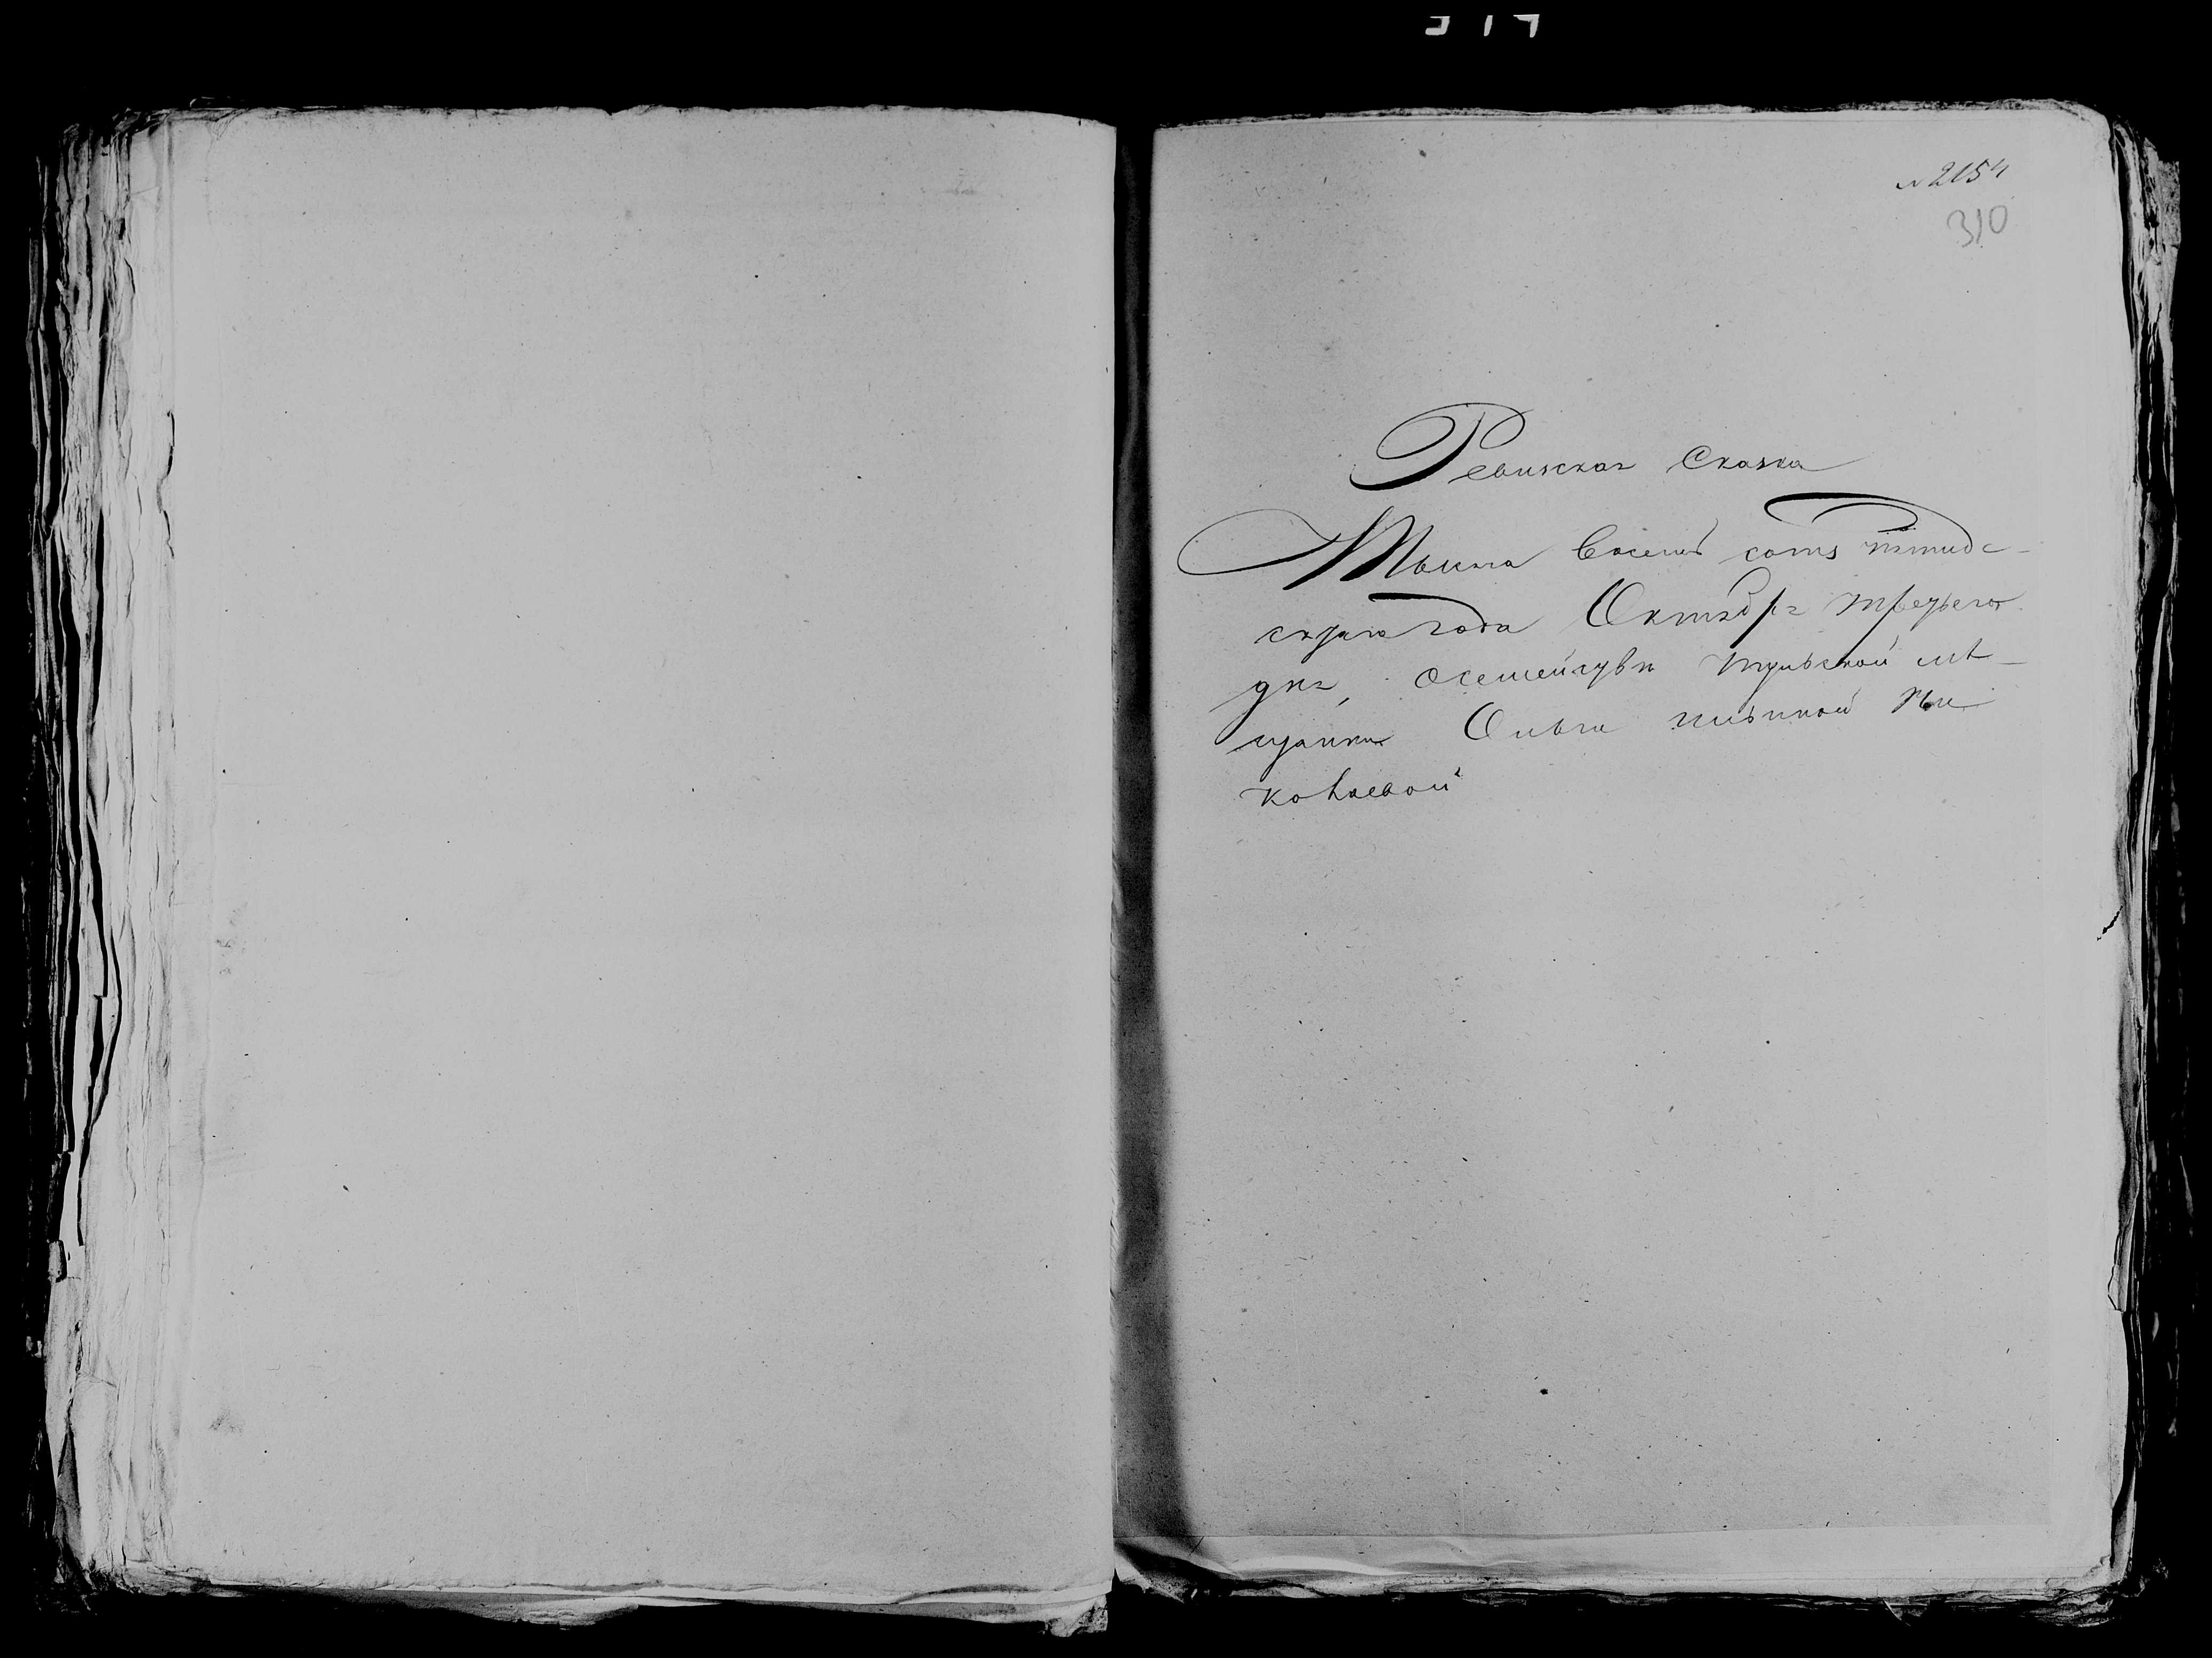 № 2154
310
Ревизская Сказка
Тысеча восемь сотъ пятиде-
сятаго года Октября третьего
дня, о семействе тульской мѣ-
щанки Ольги ильиной Ни
колаевой